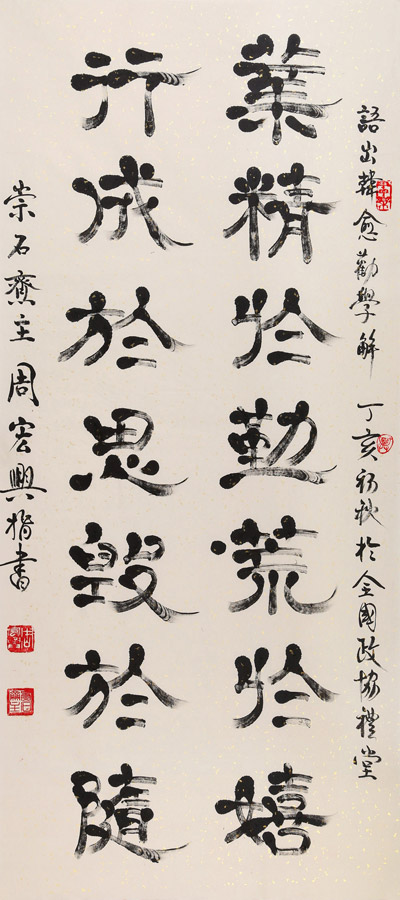 語出韓愈勸學解 丁亥初秋於全國政協禮堂
業精於勤荒於嬉
行成於思毀於隨
崇石齋主周宏興指書